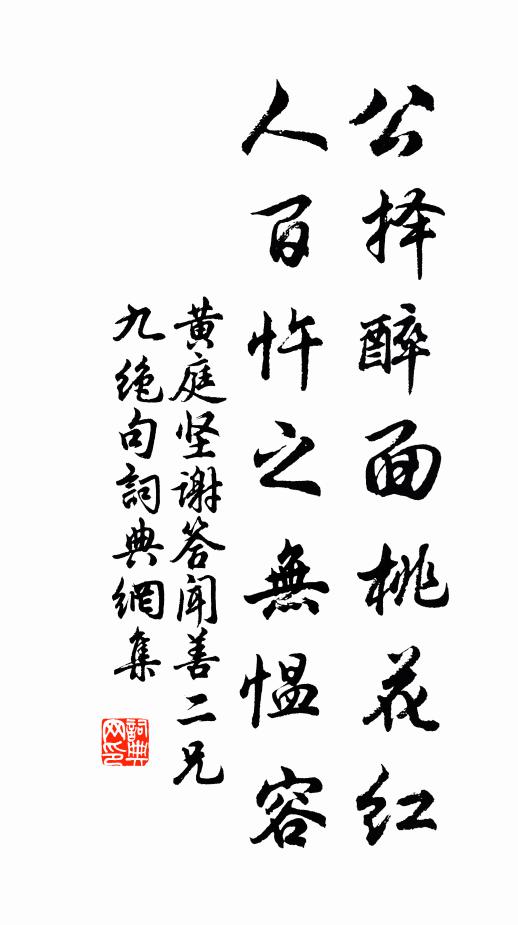 公择醉面桃花红
人百忤之無愠容
黄庭坚谢答闻善二兄
九绝句詞典網集
詞典網印